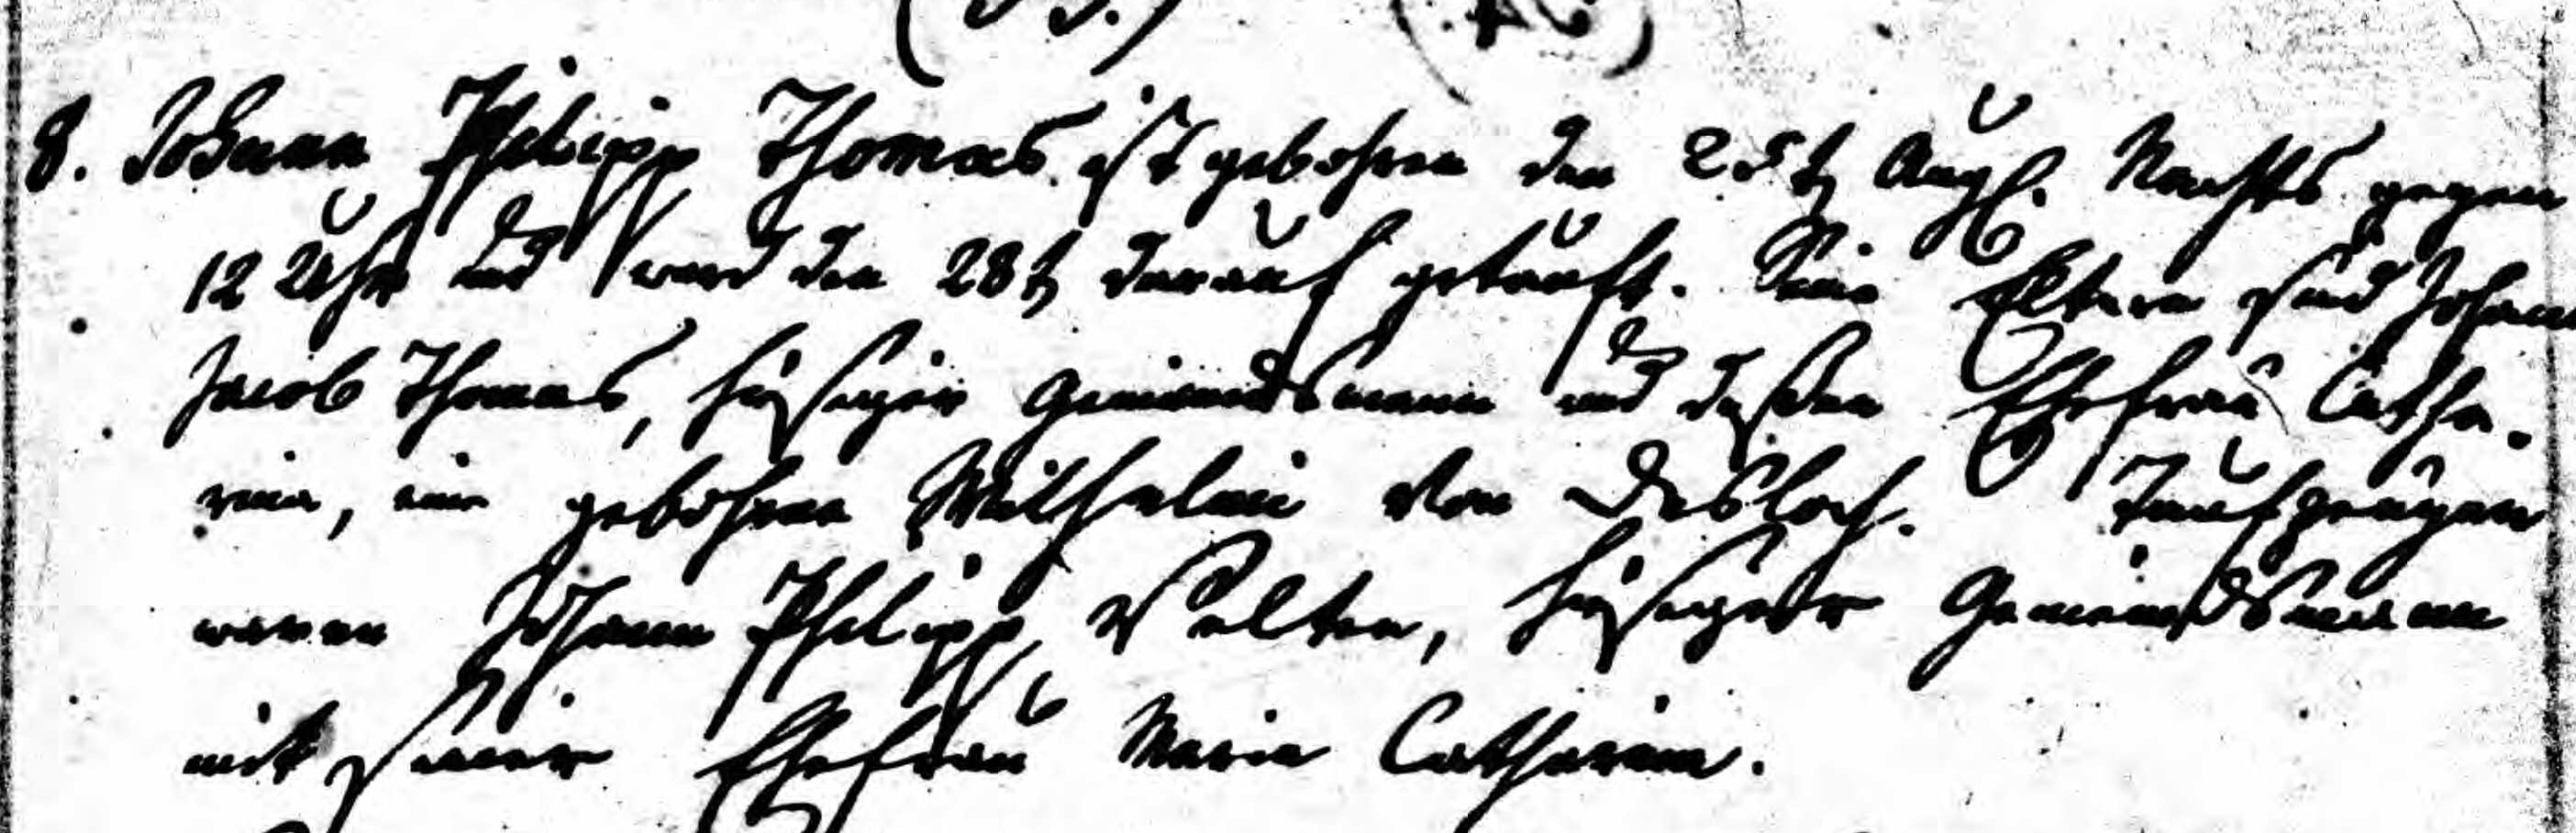 8. Johann Philipp Thomas ist gebohren den 25t Augst. Nachts gegen
12 Uhr und ward den 28t darauf getauft. Seine Eltern sind Johann
Jacob Thomas, hiesiger Gemeindsmann und dessen Ehefrau Catha-
rina, eine gebohrne Wilhelmi von Desloch. Taufzeugen
waren Johann Philipp Velten, hiesiger Gemeindsmann
mit seiner Ehefrau Maria Catharina.